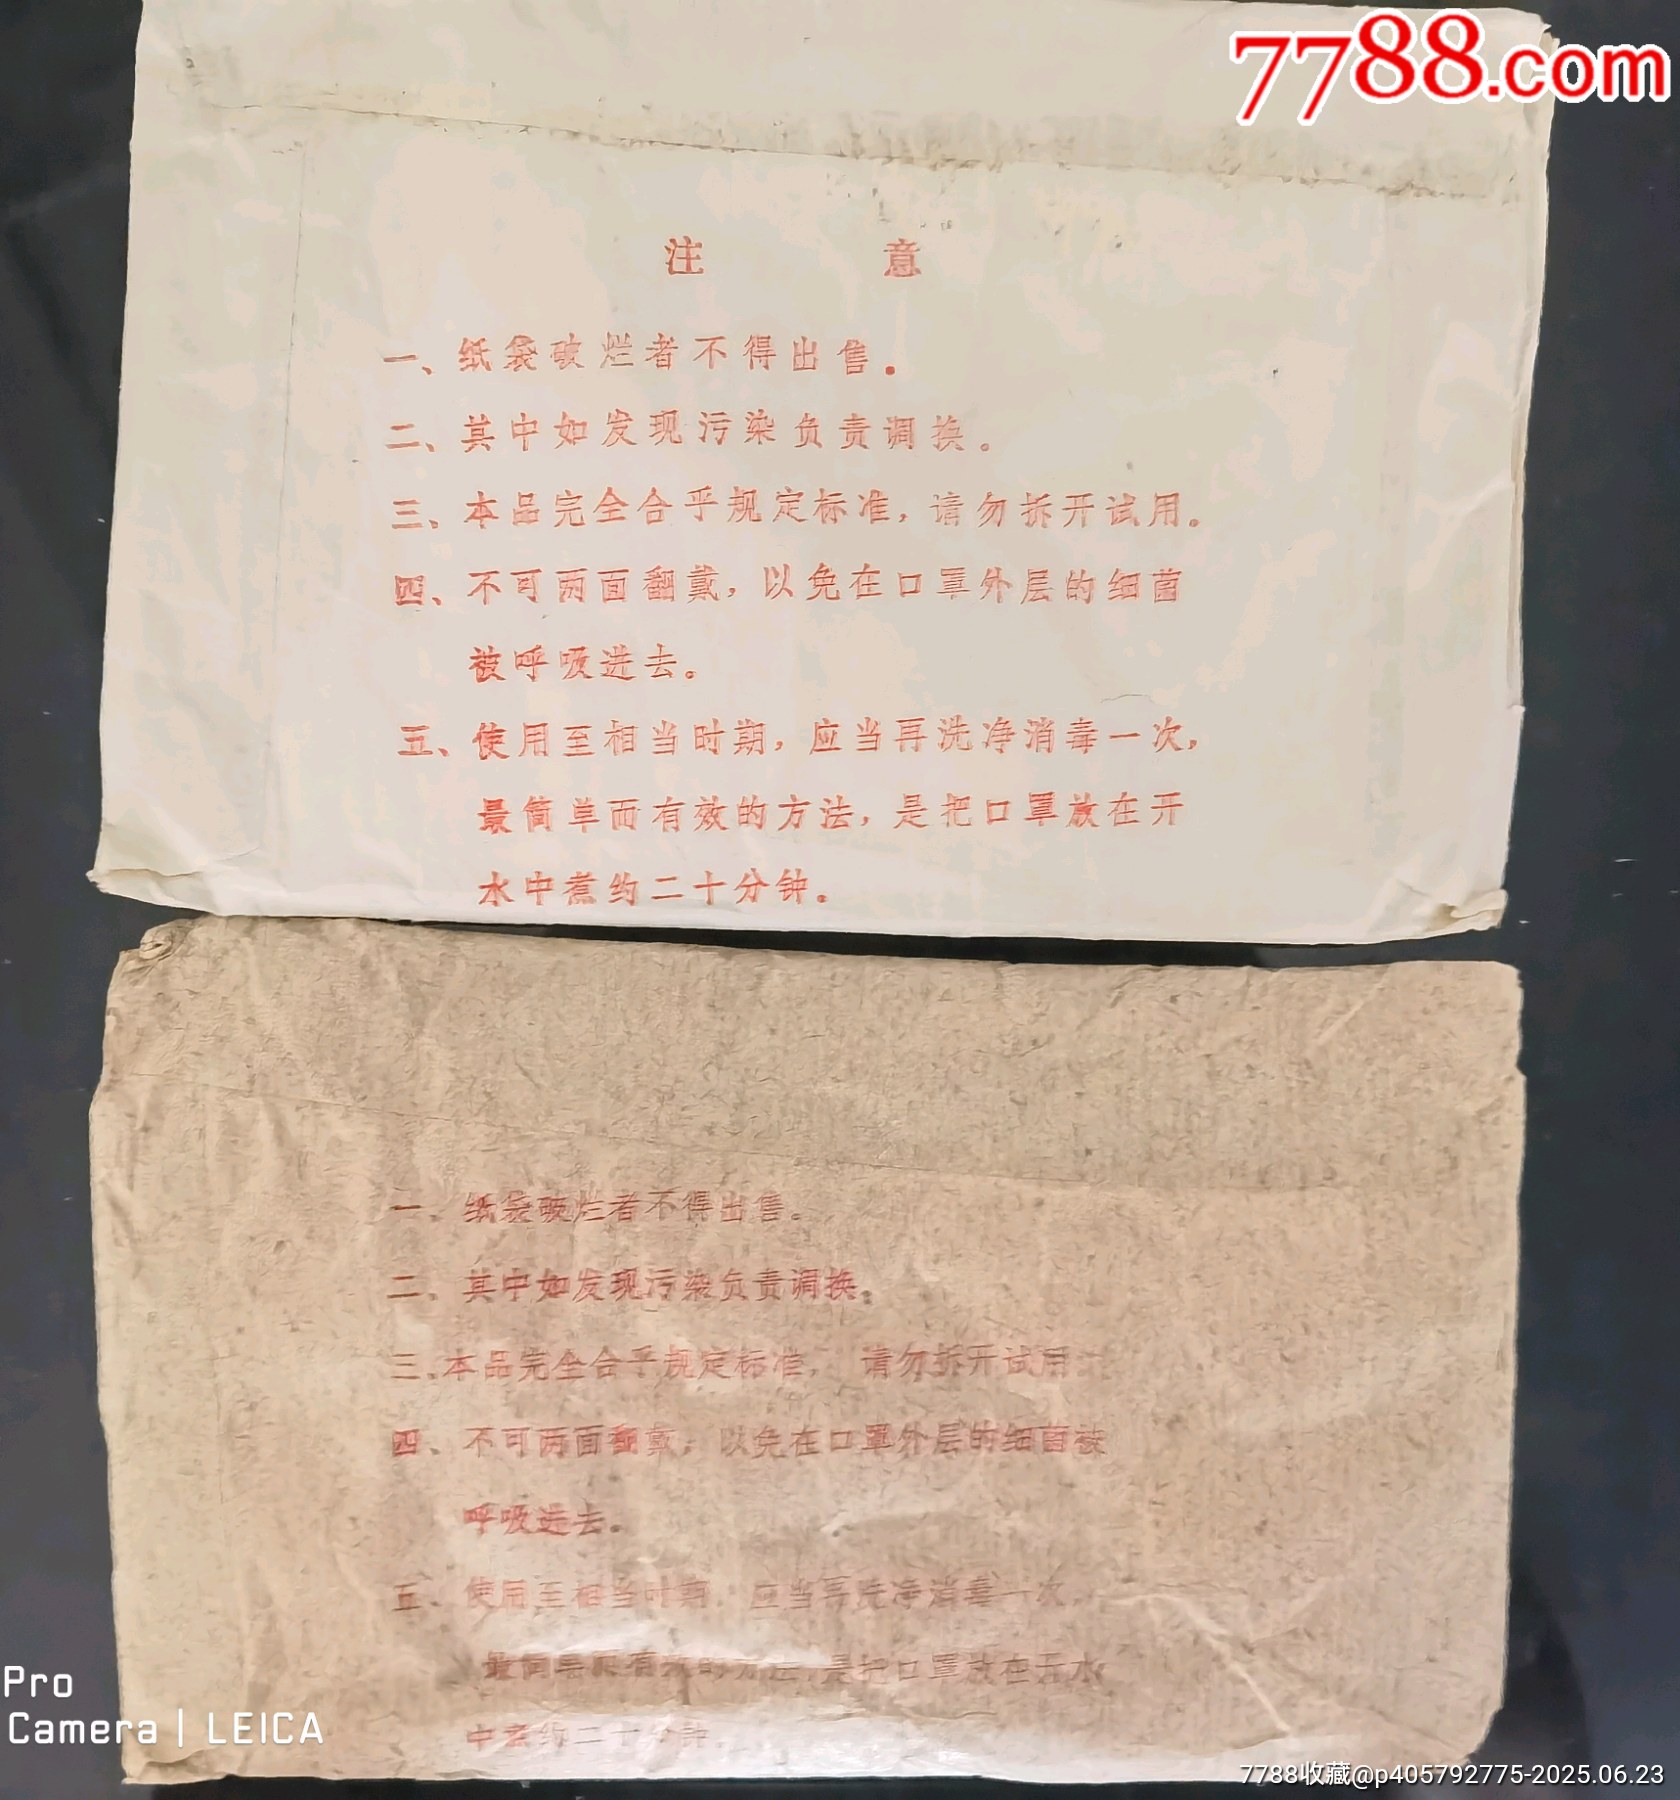 7788.com
注 意
一、纸袋破烂者不得出售。
二、其中如发现污染负责调换。
三、本品完全合乎规定标准，请勿拆开试用。
四、不可两面翻戴，以免在口罩外层的细菌
被呼吸进去。
五、使用至相当时期，应当再洗净消毒一次，
最简单而有效的方法，是把口罩放在开
水中煮约二十分钟。
一、纸袋破烂者不得出售。
二、其中如发现污染负责调换。
三、本品完全合乎规定标准， 请勿拆开试用
四、不可两面翻戴，以免在口罩外层的细菌被
呼吸进去。
五、使用至相当时期，应当再洗净消毒一次，
最简单而有效的方法，是把口罩放在开水
中煮约二十分钟。
Pro
Camera | LEICA
7788收藏@p405792775-2025.06.23